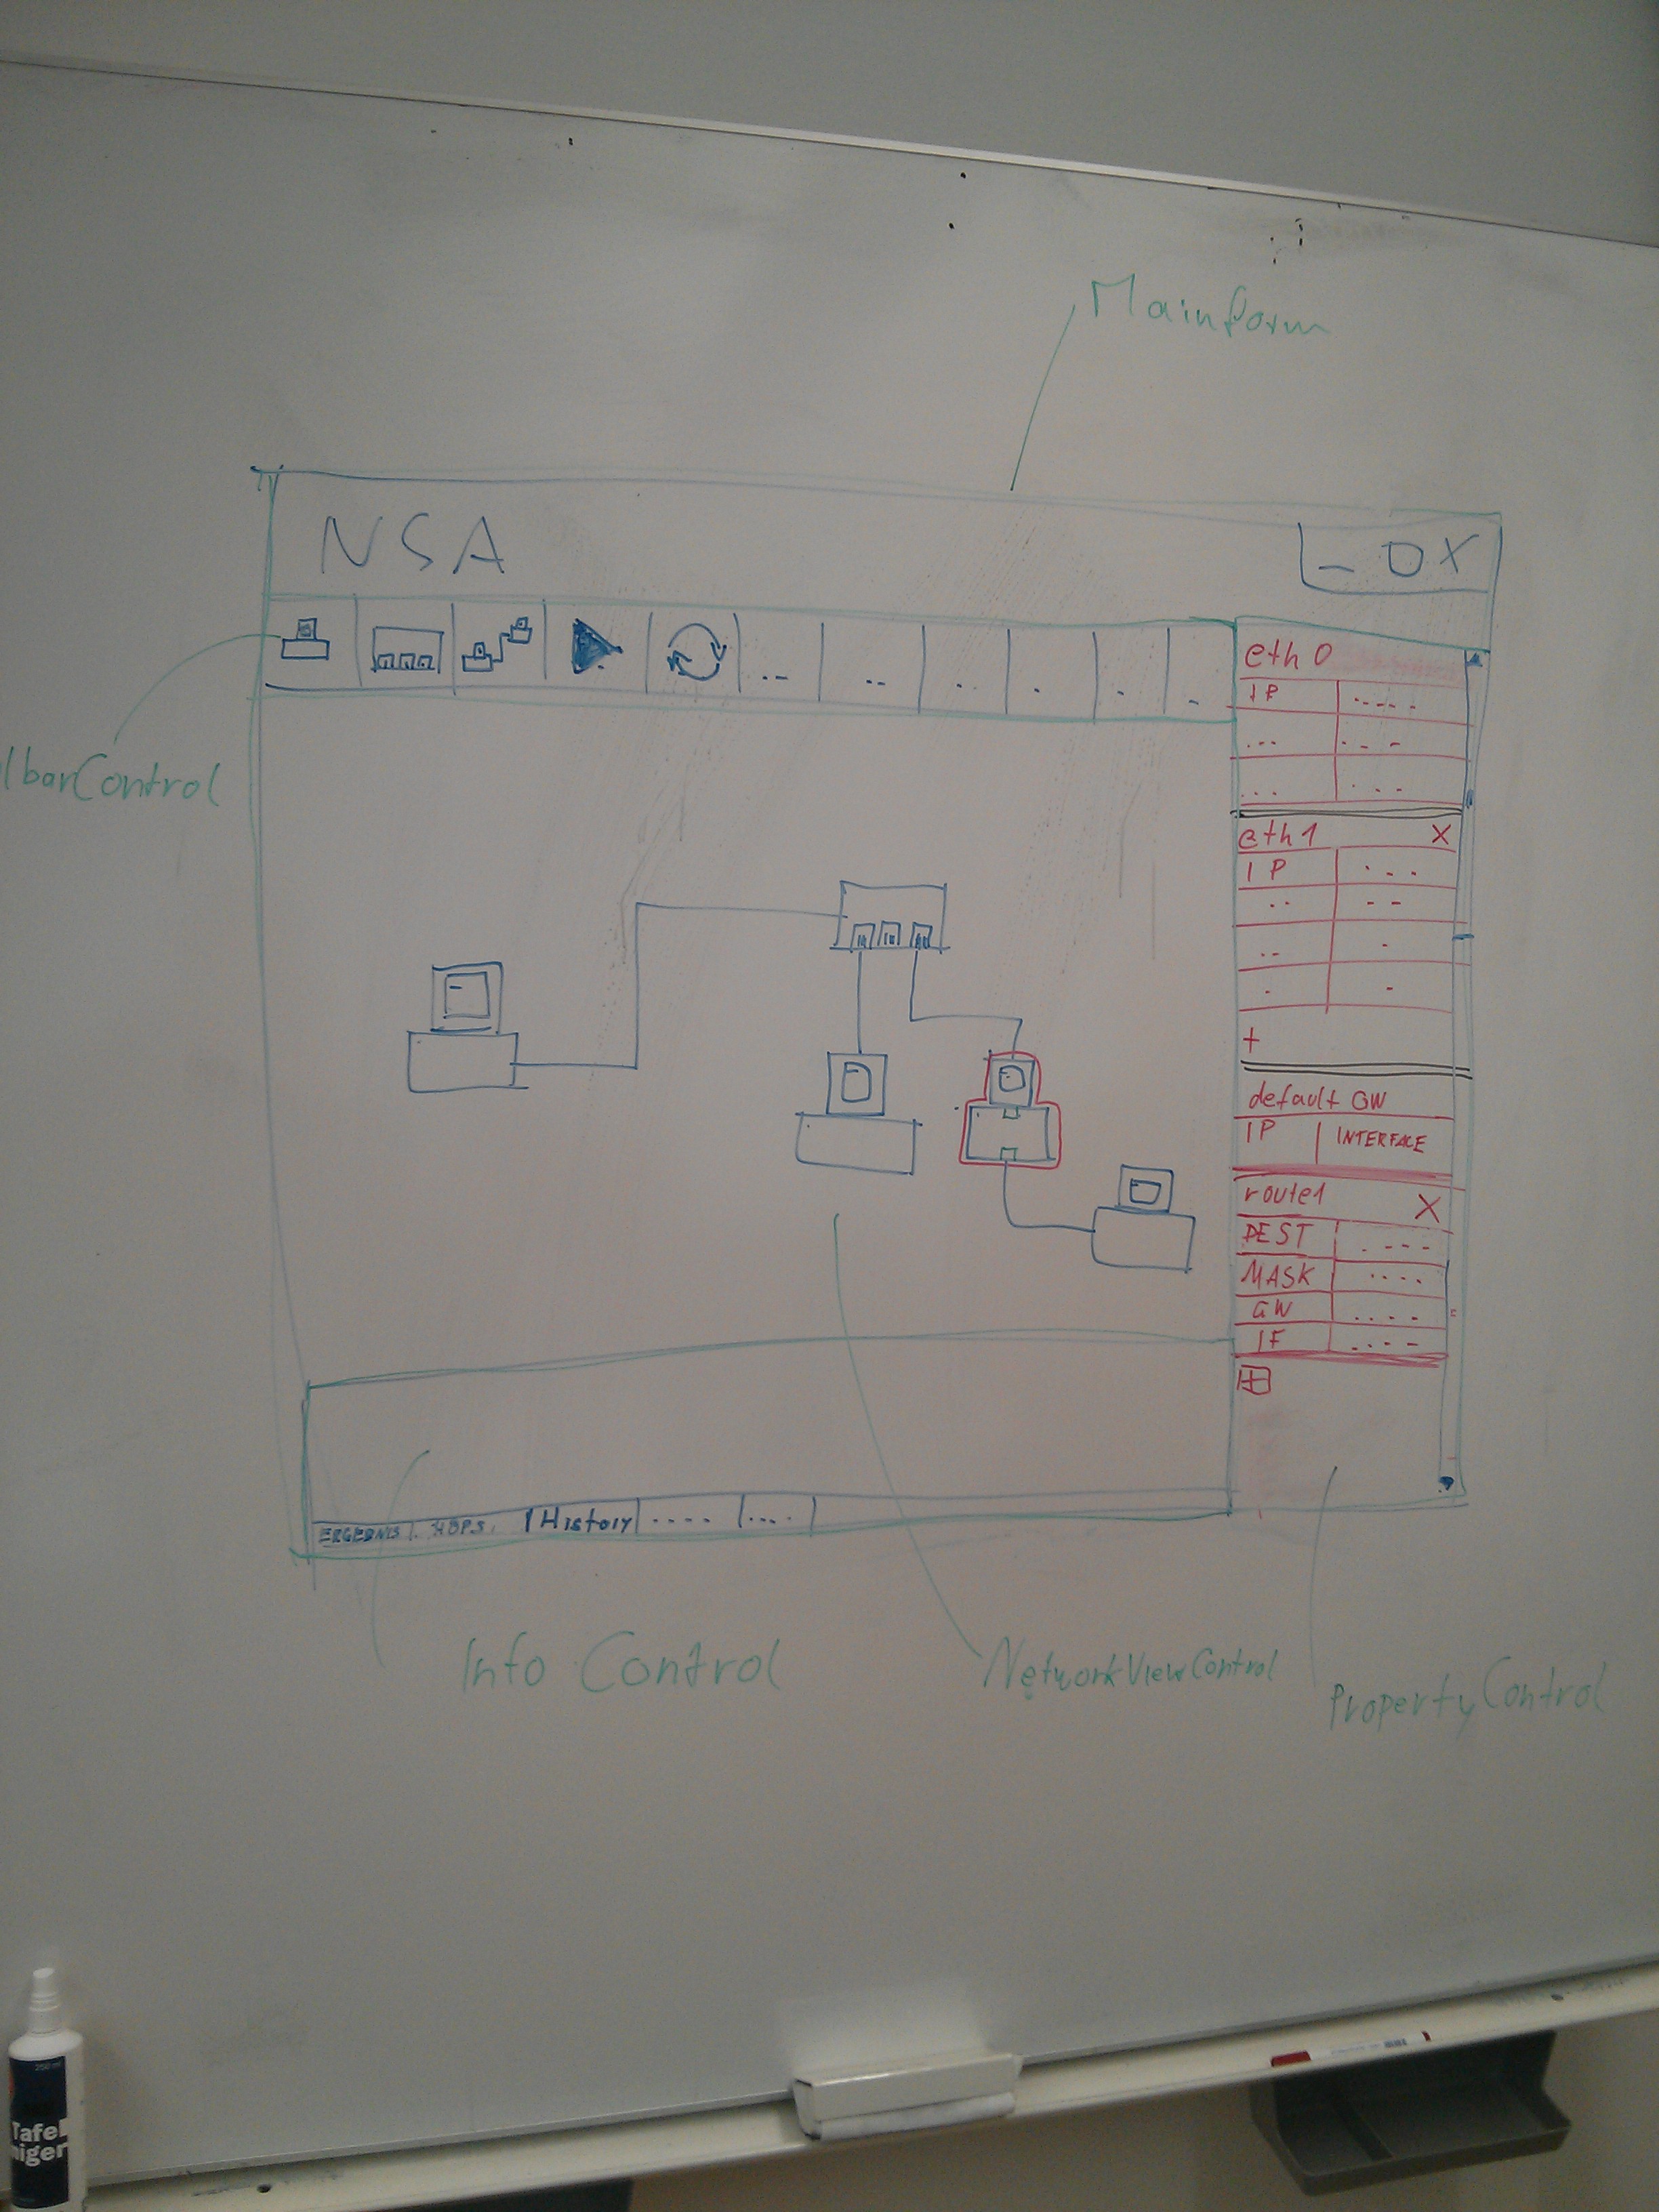 Mainform
NSA
_ O X
lbarControl
eth 0
IP
eth1 X
IP
+
default GW
IP INTERFACE
route1 X
DEST
MASK
GW
IF
+
ERGEBNIS HOPS History
Info Control
NetworkViewControl
PropertyControl
250 ml
Tafel
niger